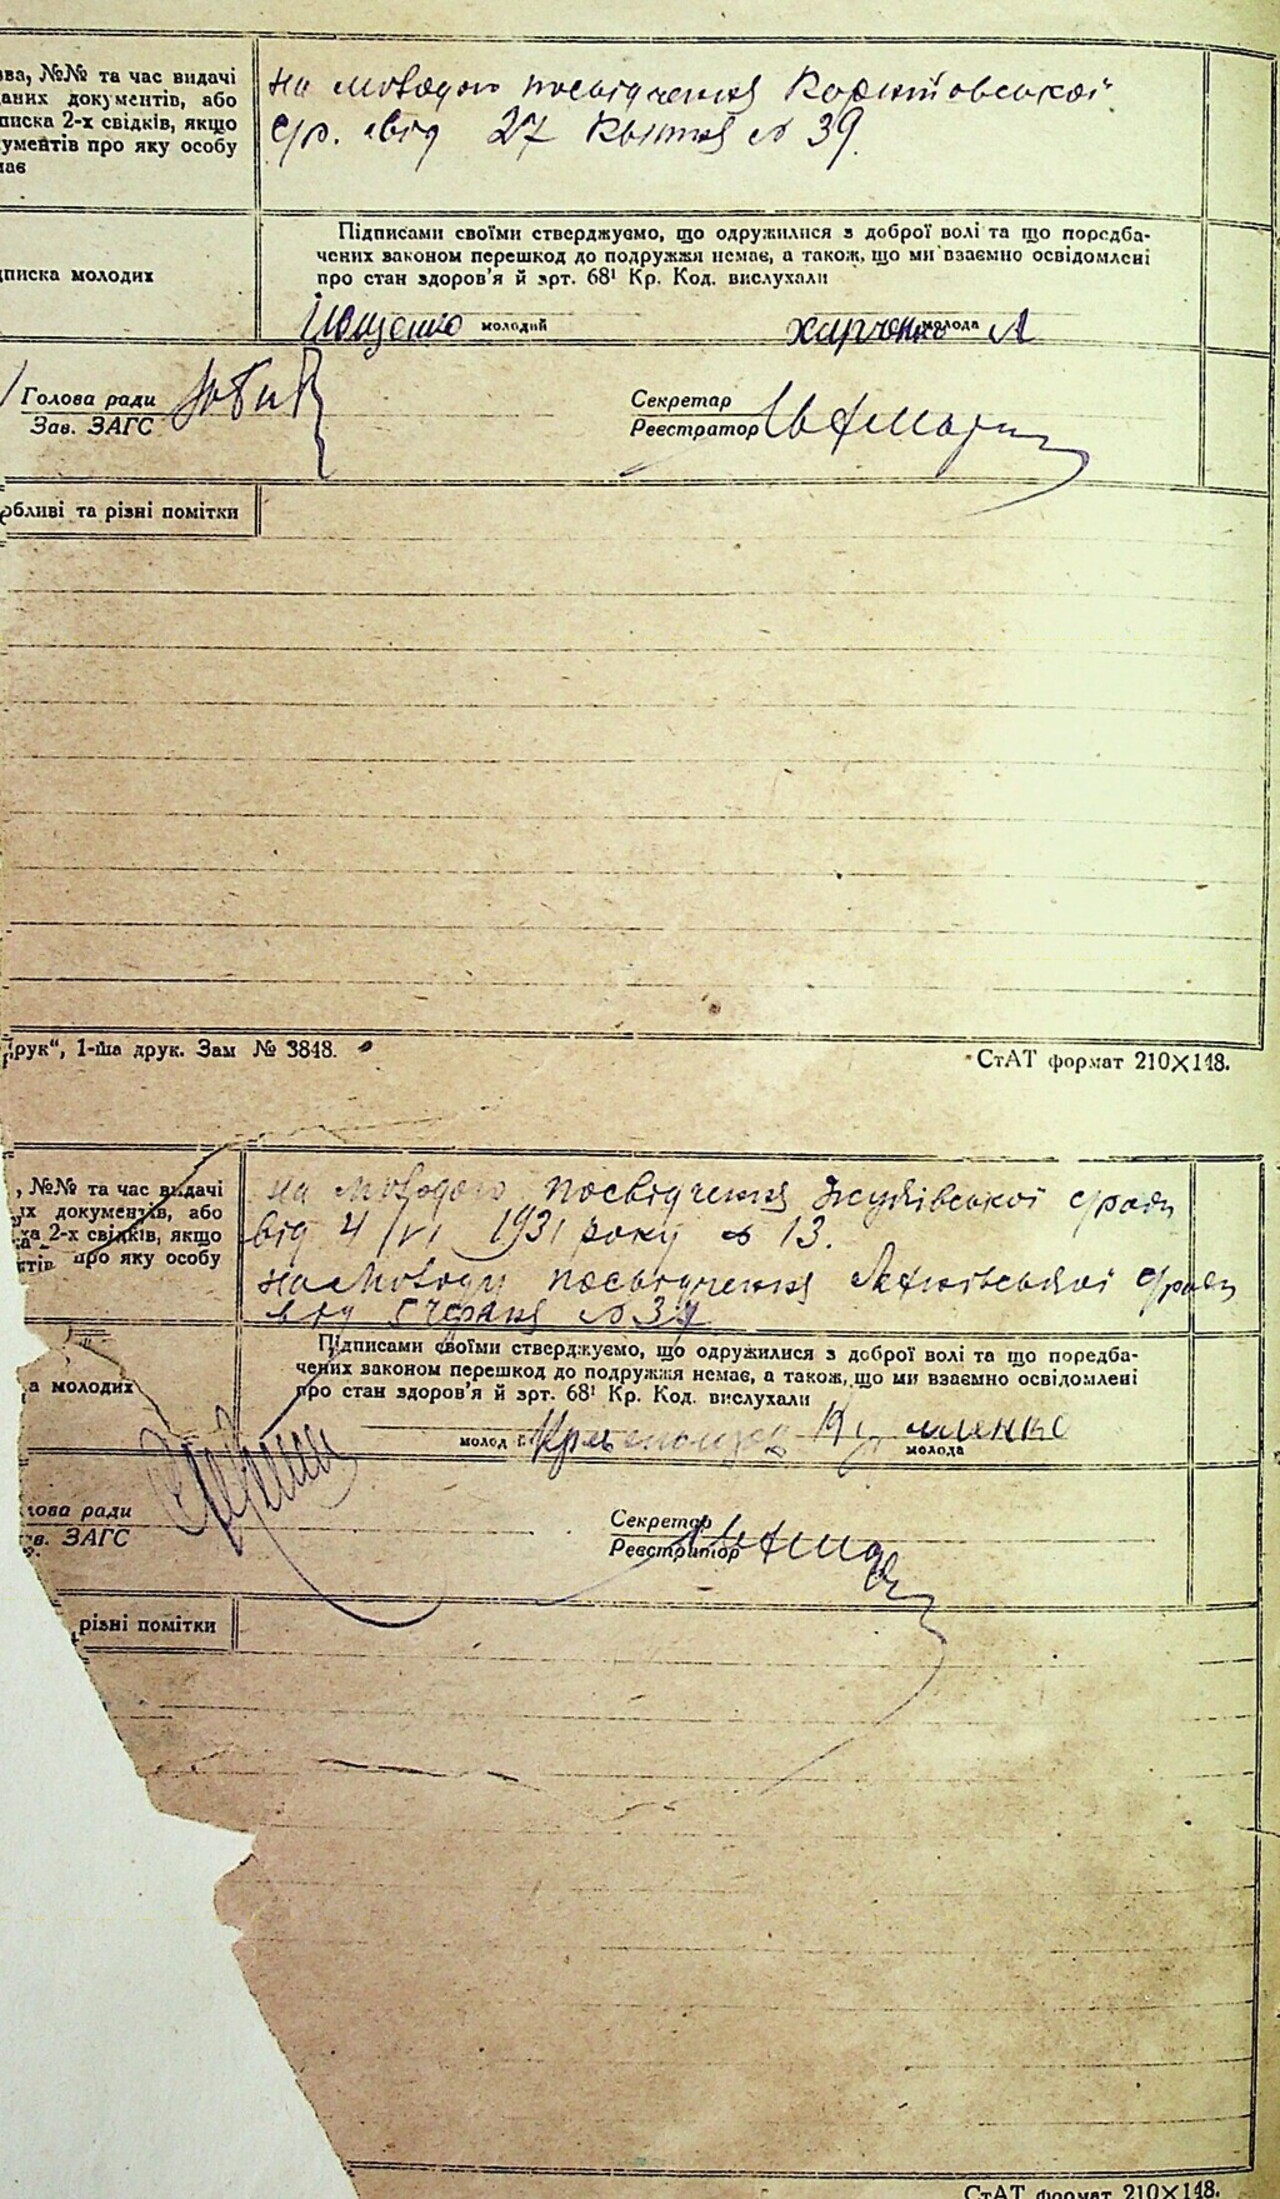 ва, №№ та час видачі
даних документів, або
писка 2-х свідків, якщо
ументів про яку особу
має
на молодого посвідчення
ср. від 27 квітня № 39.
дписка молодих
Підписами своїми стверджуємо, що одружилися з доброї волі та що поредба-
чених законом перешкод до подружжя немає, а також, що ми взаємно освідомлені
про стан здоров'я й зрт. 68¹ Кр. Код. вислухали
Ющенко молодий Харченко молода А
Голова ради
Зав. ЗАГС
Секретар
Реєстратор
обливі та різні помітки
Друк“, 1-ша друк. Зам № 3848.
СтАТ формат 210×148.
, №№ та час видачі
их документів, або
ка 2-х свідків, якщо
нтів про яку особу
на молодого посвідчення сради
від 4/VI 1931 року № 13.
на молоду посвідчення сради
від серпня № 34
а молодих
Підписами своїми стверджуємо, що одружилися з доброї волі та що поредба-
чених законом перешкод до подружжя немає, а також, що ми взаємно освідомлені
про стан здоров'я й зрт. 68¹ Кр. Код. вислухали
молод
молода
лова ради
в. ЗАГС
Секретар
Реєстратор
різні помітки
СтАТ формат 210×148.